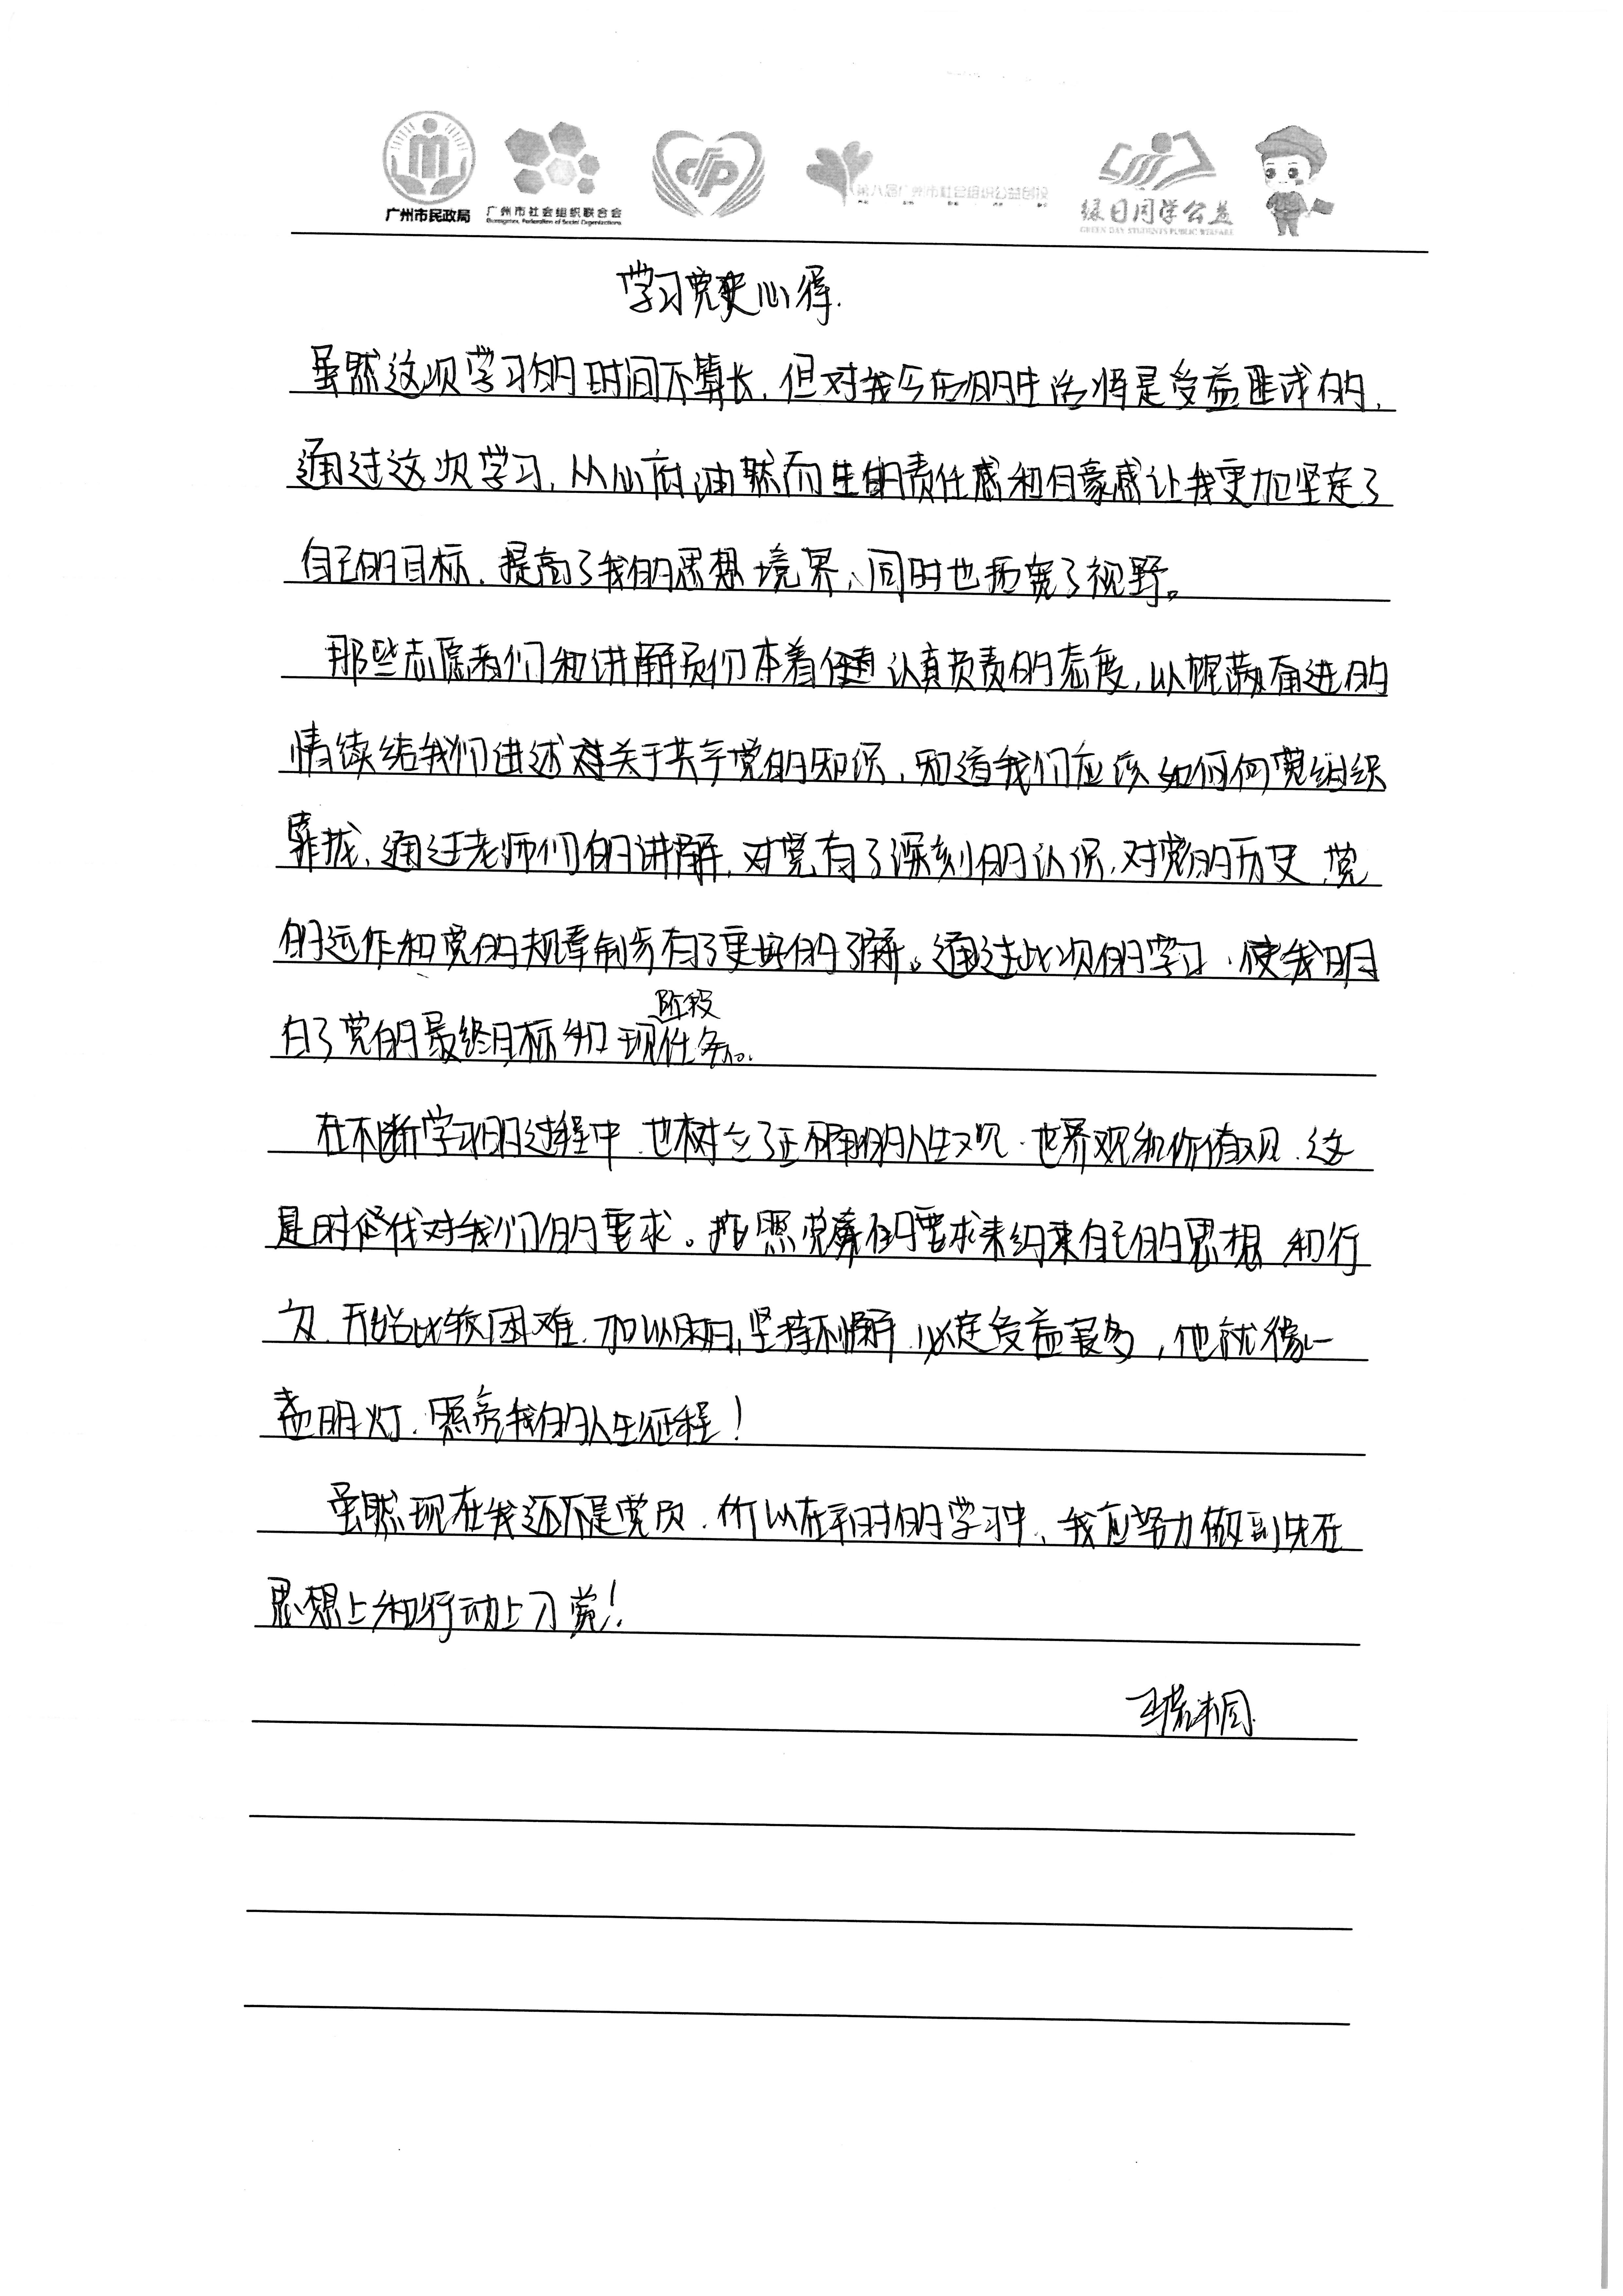 广州市民政局
广州市社会组织联合会
第八届广州市社会组织公益创投
绿日同学公益
GREEN DAY STUDENTS PUBLIC WELFARE
学习党史心得.
虽然这次学习的时间不算长,但对我今后的生活将是受益匪浅的,
通过这次学习,从心底油然而生的责任感和自豪感让我更加坚定了
自己的目标,提高了我的思想境界、同时也拓宽了视野。
那些志愿者们和讲解员们本着认真负责的态度,以饱满奋进的
情续给我们讲述关于共产党的知识,知道我们应该如何向党组织
靠拢、通过老师们的讲解,对党有了深刻的认识,对党的历史、党
的运作和党的规章制度有了更好的了解。通过此次的学习,使我明
白了党的最终目标和现阶段任务。
在不断学习的过程中,也树立了正确的人生观、世界观和价值观,这
是时代对我们的要求。按照党章的要求来约束自己的思想和行
为,开始比较困难,加以时日,坚持不懈,必定受益最多,他就像一
盏明灯,照亮我的人生征程!
虽然现在我还不是党员,所以在平时的学习中、我应努力做到先在
思想上和行动上入党!